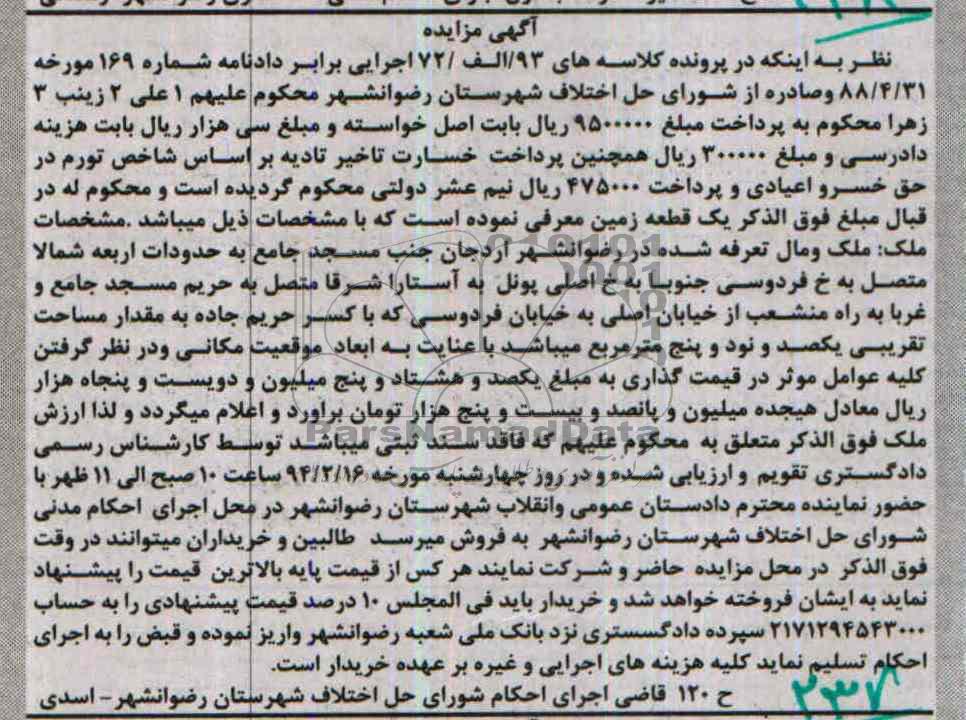 آگهی مزایده
نظر به اینکه در پرونده کلاسه های ۹۳/الف /۷۲ اجرایی برابر دادنامه شماره ۱۶۹ مورخه
۸۸/۴/۳۱ وصادره از شورای حل اختلاف شهرستان رضوانشهر محکوم علیهم ۱ علی ۲ زینب ۳
زهرا محکوم به پرداخت مبلغ ۹۵۰۰۰۰۰ ریال بابت اصل خواسته و مبلغ سی هزار ریال بابت هزینه
دادرسی و مبلغ ۳۰۰۰۰۰ ریال همچنین پرداخت خسارت تاخیر تادیه بر اساس شاخص تورم در
حق خسرو اعیادی و پرداخت ۴۷۵۰۰۰ ریال نیم عشر دولتی محکوم گردیده است و محکوم له در
قبال مبلغ فوق الذکر یک قطعه زمین معرفی نموده است که با مشخصات ذیل میباشد .مشخصات
ملک: ملک ومال تعرفه شده در رضوانشهر اردجان جنب مسجد جامع به حدودات اربعه شمالا
متصل به خ فردوسی جنوبا به خ اصلی پونل به آستارا شرقا متصل به حریم مسجد جامع و
غربا به راه منشعب از خیابان اصلی به خیابان فردوسی که با کسر حریم جاده به مقدار مساحت
تقریبی یکصد و نود و پنج مترمربع میباشد با عنایت به ابعاد موقعیت مکانی ودر نظر گرفتن
کلیه عوامل موثر در قیمت گذاری به مبلغ یکصد و هشتاد و پنج میلیون و دویست و پنجاه هزار
ریال معادل هیجده میلیون و پانصد و بیست و پنج هزار تومان براورد و اعلام میگردد و لذا ارزش
ملک فوق الذکر متعلق به محکوم علیهم که فاقد سند ثبتی میباشد توسط کارشناس رسمی
دادگستری تقویم و ارزیابی شده و در روز چهارشنبه مورخه ۹۴/۲/۱۶ ساعت ۱۰ صبح الی ۱۱ ظهر با
حضور نماینده محترم دادستان عمومی وانقلاب شهرستان رضوانشهر در محل اجرای احکام مدنی
شورای حل اختلاف شهرستان رضوانشهر به فروش میرسد طالبین و خریداران میتوانند در وقت
فوق الذکر در محل مزایده حاضر و شرکت نمایند هر کس از قیمت پایه بالاترین قیمت را پیشنهاد
نماید به ایشان فروخته خواهد شد و خریدار باید فی المجلس ۱۰ درصد قیمت پیشنهادی را به حساب
۲۱۷۱۲۹۴۵۴۳۰۰۰ سپرده دادگستری نزد بانک ملی شعبه رضوانشهر واریز نموده و قبض را به اجرای
احکام تسلیم نماید کلیه هزینه های اجرایی و غیره بر عهده خریدار است.
ح ۱۲۰ قاضی اجرای احکام شورای حل اختلاف شهرستان رضوانشهر – اسدی
۲۳۷
ParsNamadData